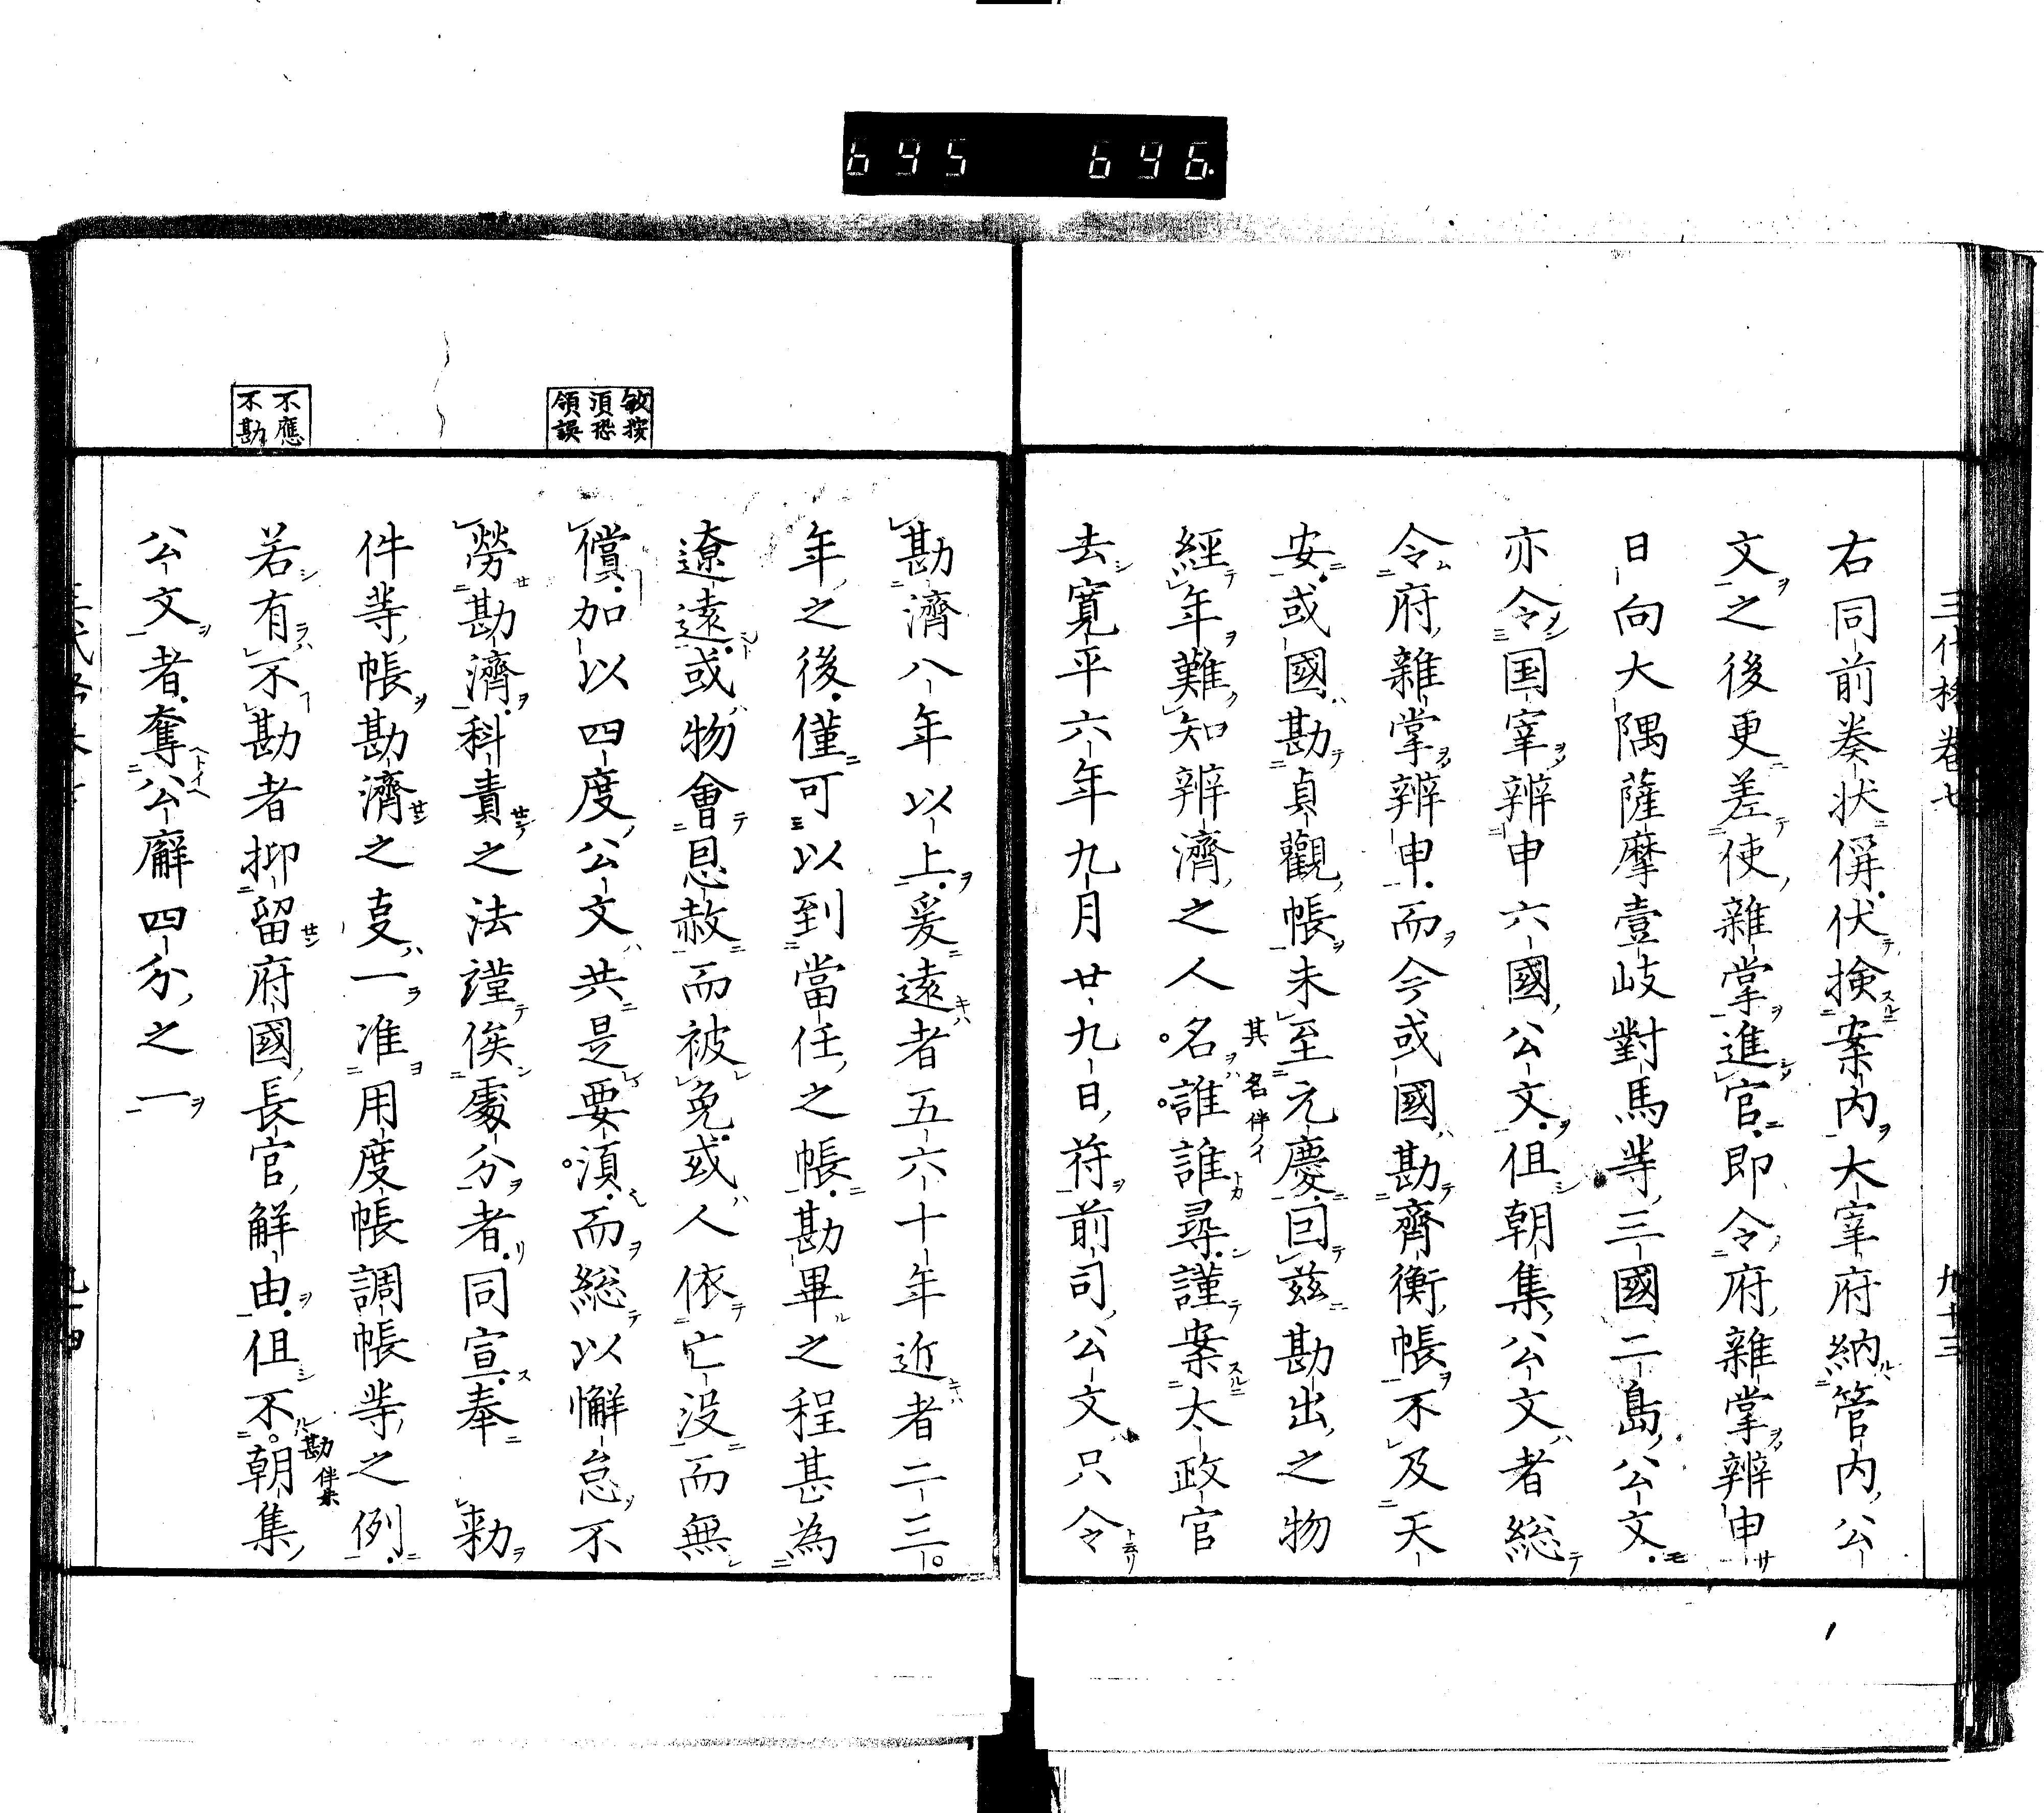 695 696
三代格卷七 九十三
右同前奏状偁伏検案内大宰府納管内公
文之後更差使雜掌進官即令府雜掌辨申
日向大隅薩摩壹岐對馬等三國二島公文
亦令国宰辨申六國公文但朝集公文者総
令府雜掌辨申而今或國勘齊衡帳不及天
安或國勘貞觀帳未至元慶回茲勘出之物
經年難知辨濟之人名誰誰尋謹案太政官
其名伴イ
去寛平六年九月廿九日符前司公文只令
勘濟八年以上爰遠者五六十年近者二三
年之後僅可以到當任之帳勘畢之程甚為
遼遠或物會恩赦而被免或人依亡没而無
償加以四度公文共是要湏而総以懈怠不
敏按
湏恐
領誤
勞勘濟科責之法謹俟處分者同宣奉 勅
件等帳勘濟之叓一准用度帳調帳等之例
若有不勘者抑留府國長官解由但不朝集
勘伴集
不應
不勘
公文者奪公廨四分之一